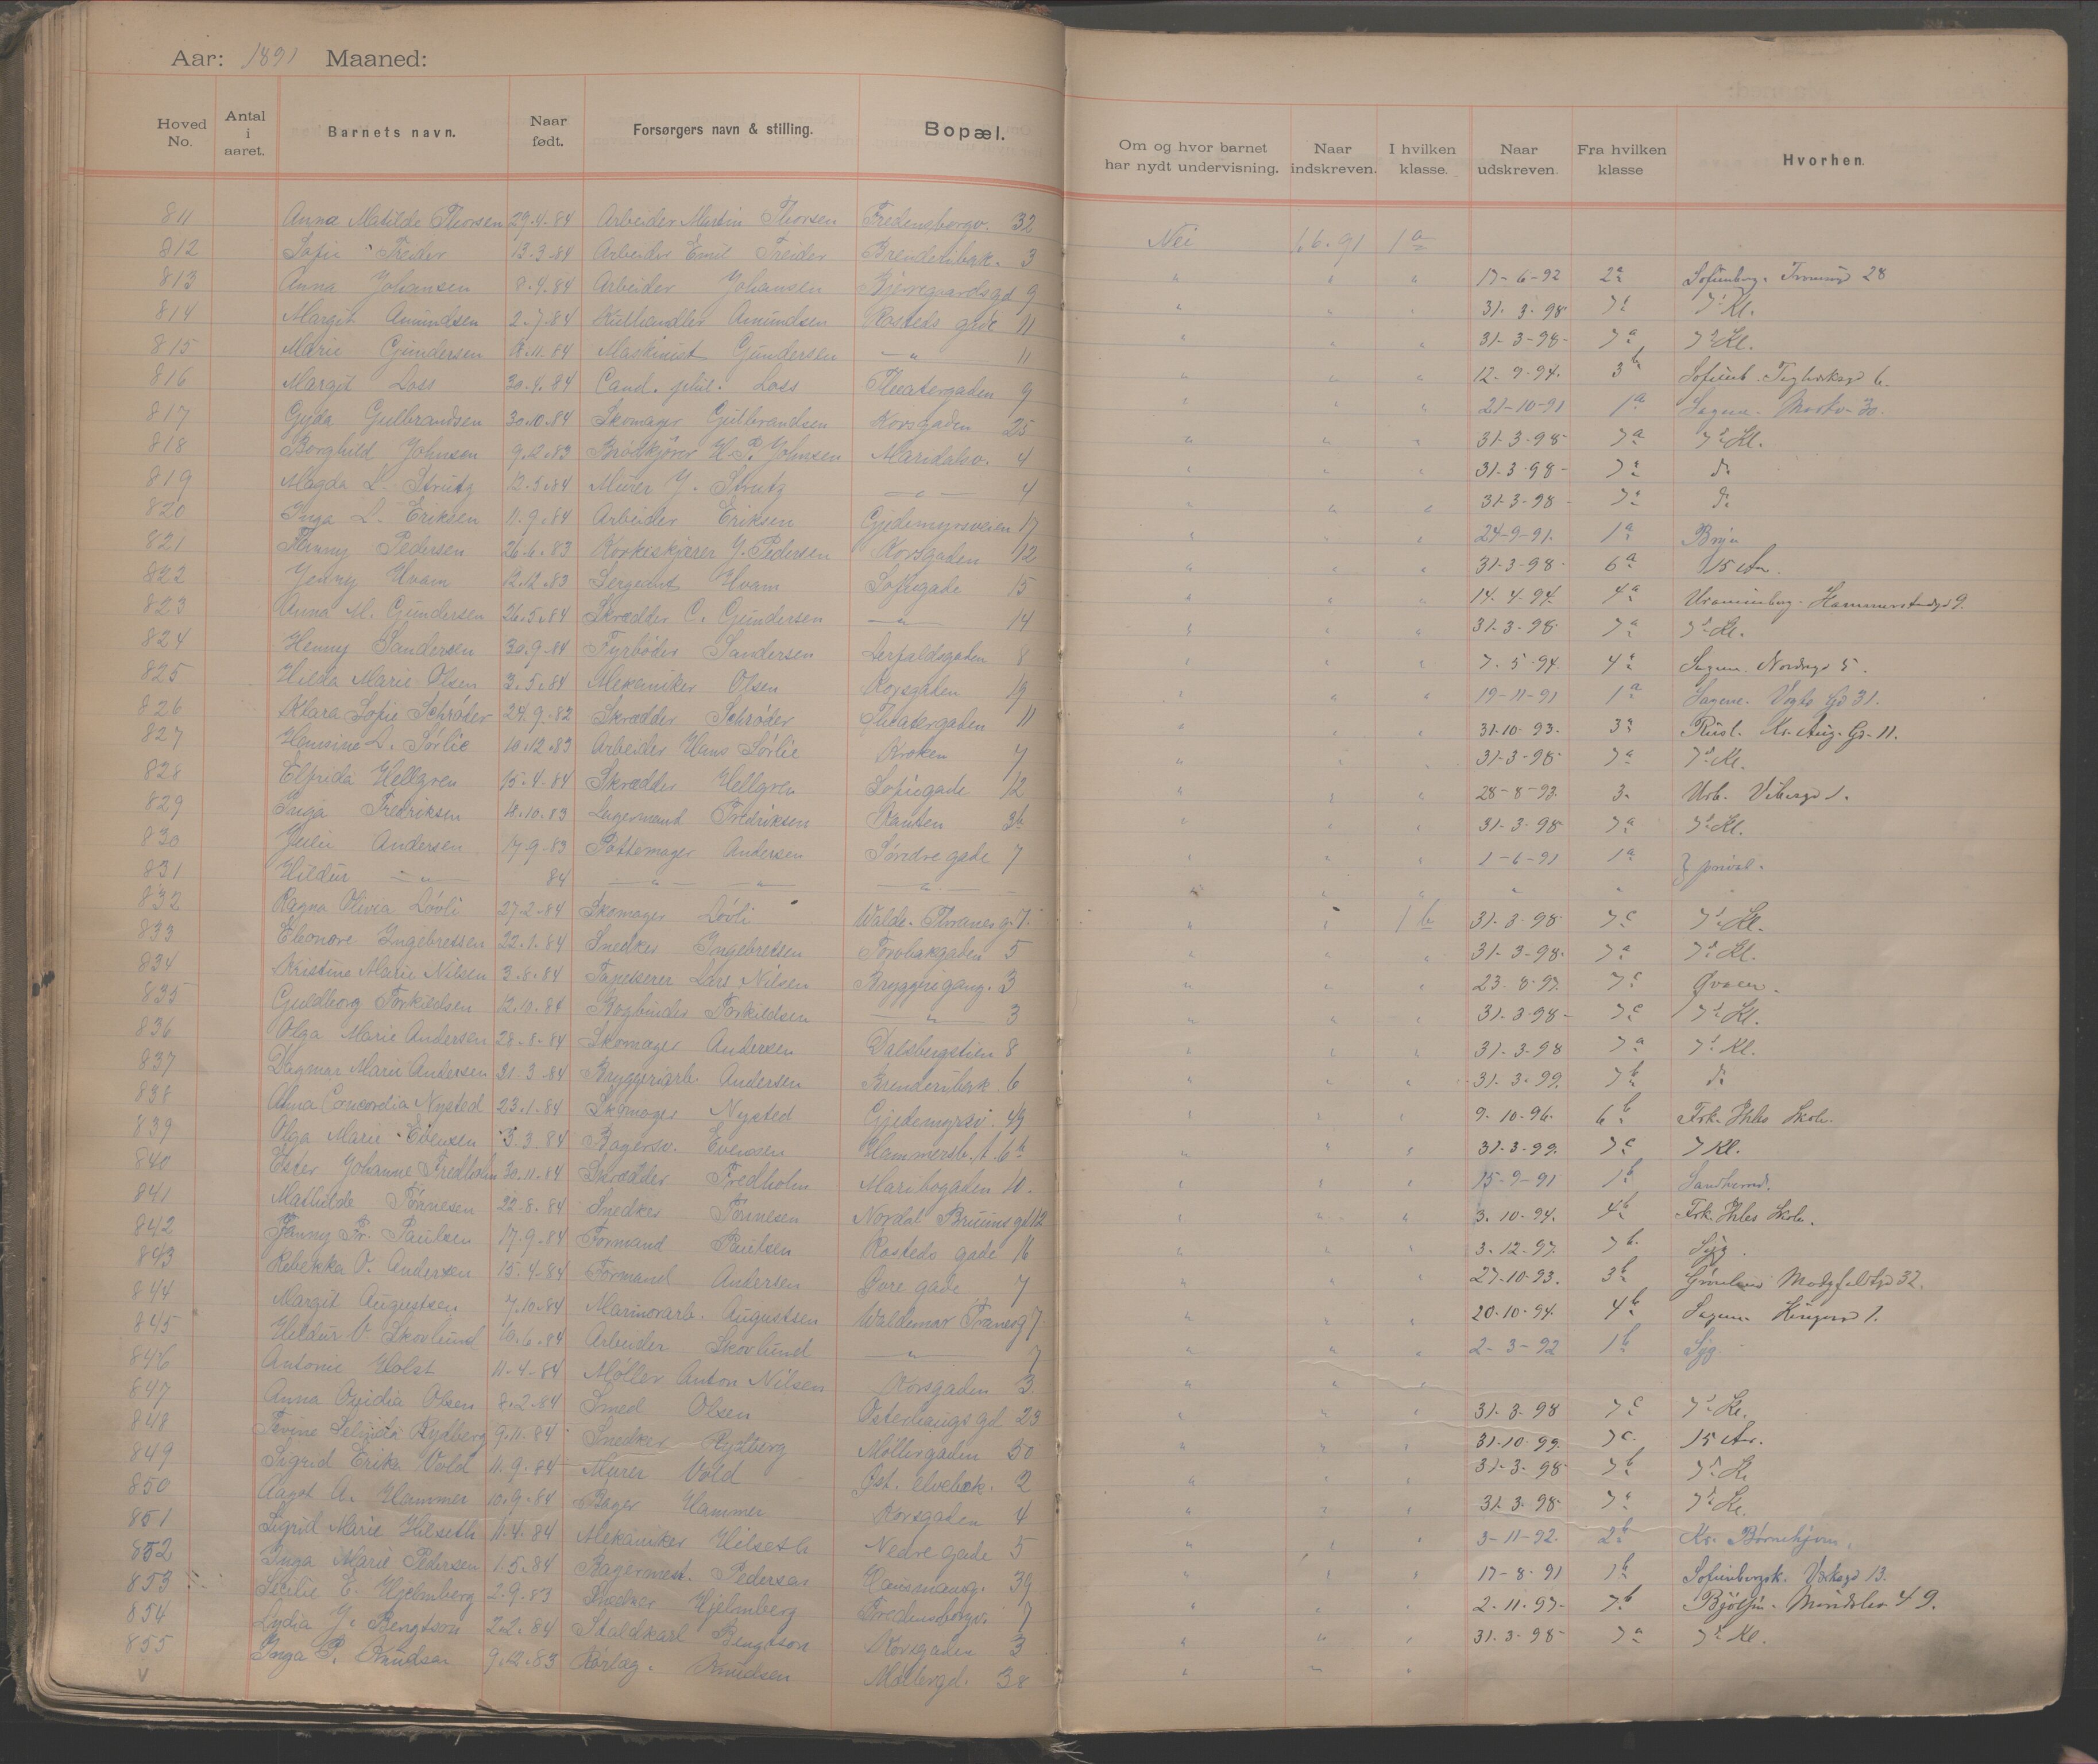 Aar: 1891 Maaned:
Hoved No. Antal i aaret. Barnets navn. Naar født. Forsørgers navn & stilling. Bopæl. Om og hvor barnet har nydt undervisning. Naar indskreven. I hvilken klasse. Naar udskreven. Fra hvilken klasse Hvorhen.
811 Anna Matilde Thorsen 29.4.84 Arbeider Martin Thorsen Fredensborgv. 32 Nei 1.6.91 1a
812 Sofie Treider 13.3.84 Arbeider Emil Treider Brendenbak. 3 " " " 17-6-92 2a Sofienberg. 28
813 Anna Johansen 8.4.84 Arbeider Johansen Bjerregaardsgd 9 " " " 31.3.98 7a 7d Kl.
814 Margit Amundsen 2.7.84 Kulhandler Amundsen Rosteds gade 11 " " " 31-3-98- 7a 7d Kl.
815 Marie Gundersen 18.11.84 Maskinist Gundersen — " — 11 " " " 12-9-94. 3b Sofienb. 6.
816 Margit Loss 30.4.84 Cand. phil. Loss Theatergaden 9 " " " 21-10-91 1a Sagene. 30.
817 Gyda Gulbrandsen 30.10.84 Skomager Gulbrandsen Korsgaden 25 " " " 31-3-98- 7a 7d Kl.
818 Borghild Johnsen 9.2.83 Brødkjører H.P. Johnsen Maridalsv. 4 " " " 31-3-98- 7a do
819 Magda L. Strutz 12.5.84 Murer J. Strutz — " — 4 " " " 31-3-98- 7a do
820 Inga L. Eriksen 11.9.84 Arbeider Eriksen Gjedemyrsveien 17 " " " 24-9-91. 1a
821 Fanny Pedersen 26.6.83 Korkeskjærer J. Pedersen Korsgaden 12 " " " 31-3-98- 6a 15 Aar.
822 Jenny Hvam 12.12.83 Sergeant Hvam Sofiegade 15 " " " 14.4.94. 4a Uranienborg. Hammerstadgd 9.
823 Anna M. Gundersen 26.5.84 Skrædder C. Gundersen — " — 14 " " " 31-3-98- 7a 7d Kl.
824 Henny Sandersen 30.9.84 Fyrbøder Sandersen Lerfaldsgaden 8 " " " 7.5.94. 4a Sagene. Nordregd 5.
825 Hilda Marie Olsen 3.5.84 Mekaniker Olsen Korsgaden 19 " " " 19-11-91 1a Sagene. Vogts Gd 31.
826 Klara Sofie Schrøder 24.9.82 Skrædder Schrøder Theatergaden 11 " " " 31.10.93. 3a Rusl. Kr. Aug. Gd. 11.
827 Hansine L. Sørlie 10.12.83 Arbeider Hans Sørlie Kroken 7 " " " 31-3-98- 7a 7d Kl.
828 Elfrida Hellgren 15.4.84 Skrædder Hellgren Sofiegade 12 " " " 28-8-93. 3. Urb. Vibesgd 1.
829 Inga Fredriksen 18.10.83 Lagermand Fredriksen Banken 3b " " " 31-3-98- 7a 7d Kl.
830 Julie Andersen 17.9.83 Pottemager Andersen Søndre gade 7 " " " 1-6-91 1a } privat.
831 Hildur — " — 84 — " — — " — — " — " " " " "
832 Ragna Olivia Løvli 27.2.84 Skomager Løvli Waldr. Thranes g. 7. " " 1b 31-3-98- 7c 7d Kl.
833 Eleonore Ingebretsen 22.1.84 Snedker Ingebretsen Torvbakgaden 5 " " " 31-3-98- 7a 7d Kl.
834 Kristine Marie Nilsen 3.8.84 Tapetserer Lars Nilsen Bryggerigang. 3 " " " 23-8-97. 7c
835 Guldborg Torkildsen 12.10.84 Bogbinder Torkildsen — " — 3 " " " 31-3-98- 7c 7d Kl.
836 Olga Marie Andersen 28.8.84 Skomager Andersen Dalsbergstien 8 " " " 31-3-98 7a 7d Kl.
837 Dagmar Marie Andersen 21.3.84 Bryggeriarb. Andersen Brenderibak 6 " " " 31-3-99. 7b do
838 Anna Concordia Nysted 23.1.84 Skomager Nysted Gjedemyrsv. 49 " " " 9.10.96. 6b Frk. Ihles Skole.
839 Olga Marie Evensen 3.3.84 Bagersv. Evensen Hammersb. t. 6b " " " 31-3-99. 7c 7 Kl.
840 Ester Johanne Fredholm 30.11.84 Skrædder Fredholm Maribogaden 10. " " " 15-9-91 1b
841 Mathilde Tønnesen 22.8.84 Snedker Tønnesen Nordal Bruuns gd 12 " " " 3.10.94. 4b Frk. Ihles Skole.
842 Fanny Fr. Paulsen 17.9.84 Formand Paulsen Rosteds gade 16 " " " 3-12-97. 7b Syg.
843 Rebekka O. Andersen 15.4.84 Formand Andersen Øvre gade 7 " " " 27-10-93. 3b Grønland 32.
844 Margit Augustsen 7.10.84 Marmorarb. Augustsen Waldemar Tranes g 7 " " " 20-10-94. 4b Sagene 1.
845 Hildur V. Skovlund 10.6.84 Arbeider Skovlund — " — 7 " " " 2-3-92 1b Syg.
846 Antonie Holst 11.4.84 Møller Anton Nilsen Korsgaden 3 " " "
847 Anna Ovidia Olsen 8.2.84 Smed Olsen Østerhaugs gd 23 " " " 31-3-98 7c 7d Kl.
848 Rydberg 9.11.84 Snedker Rydberg Møllergaden 50 " " " 31-10-99. 7c 15 Aar.
849 Sigrid Erika Vold 11.9.84 Murer Vold Øst. elvebak. 2 " " " 31-3-98- 7b 7d Kl
850 Aagot A. Hammer 10.9.84 Bager Hammer Korsgaden 4 " " " 31-3-98- 7a 7d Kl.
851 Sigrid Marie Hilseth 11.4.84 Mekaniker Hilseth Nedre gade 5 " " " 3-11-92. 2b Kr. Børnehjem.
852 Inga Marie Pedersen 1.5.84 Bagermest. Pedersen Hausmansg. 39 " " " 17-8-91 1b Sofienbergsk. 13.
853 Cecilie E. Hjelmberg 2.9.83 Snedker Hjelmberg Fredensborgv. 7 " " " 2-11-97- 7b 49.
854 Lydia J. Bengtson 22.84 Staldkarl Bengtson Korsgaden 3 " " " 31-3-98- 7a 7d Kl.
855 Inga P. Knudsen 9.12.83 Rørlæg. Knudsen Møllergd. 38 " " "
V